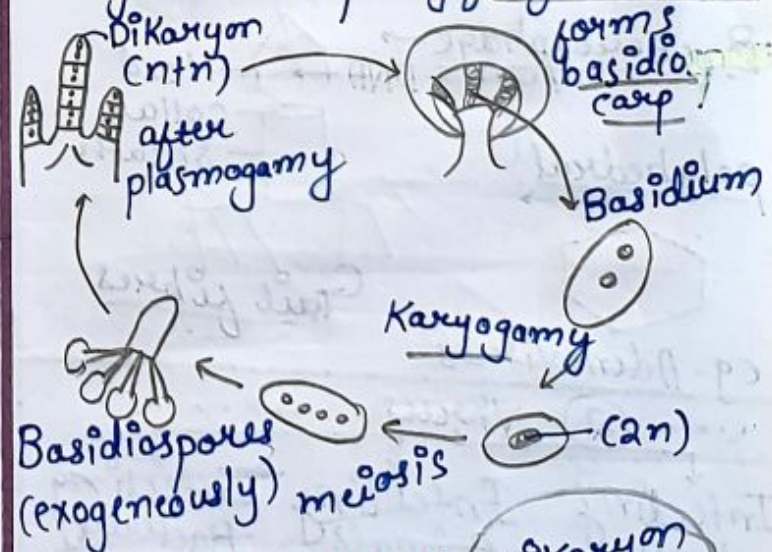 Dikaryon
(n+n)
after
plasmogamy
forms
basidio
carp
Basidium
Karyogamy
(2n)
meiosis
Basidiospores
(exogeneously)